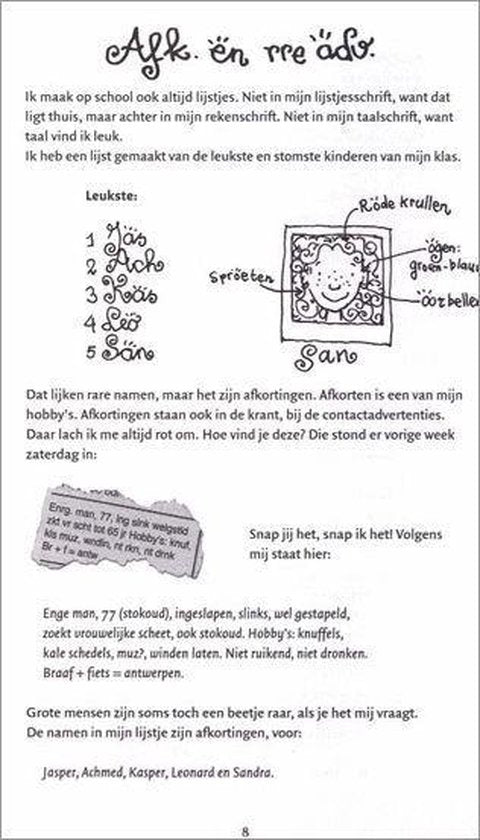 Afk. en rre adv.
Ik maak op school ook altijd lijstjes. Niet in mijn lijstjesschrift, want dat
ligt thuis, maar achter in mijn rekenschrift. Niet in mijn taalschrift, want
taal vind ik leuk.
Ik heb een lijst gemaakt van de leukste en stomste kinderen van mijn klas.
Leukste:
1 Jas
2 Ach
3 Kas
4 Leo
5 San
Röde krullen
ögen:
groen-blauw
Spröeten
öorbellen
San
Dat lijken rare namen, maar het zijn afkortingen. Afkorten is een van mijn
hobby's. Afkortingen staan ook in de krant, bij de contactadvertenties.
Daar lach ik me altijd rot om. Hoe vind je deze? Die stond er vorige week
zaterdag in:
Enrg. man, 77, ing slnk welgstld
zkt vr scht tot 65 jr Hobby's: knuf,
kls muz, wndln, nt rkn, nt drnk
Br + f = antw
Snap jij het, snap ik het! Volgens
mij staat hier:
Enge man, 77 (stokoud), ingeslapen, slinks, wel gestapeld,
zoekt vrouwelijke scheet, ook stokoud. Hobby's: knuffels,
kale schedels, muz?, winden laten. Niet ruikend, niet dronken.
Braaf + fiets = antwerpen.
Grote mensen zijn soms toch een beetje raar, als je het mij vraagt.
De namen in mijn lijstje zijn afkortingen, voor:
Jasper, Achmed, Kasper, Leonard en Sandra.
8